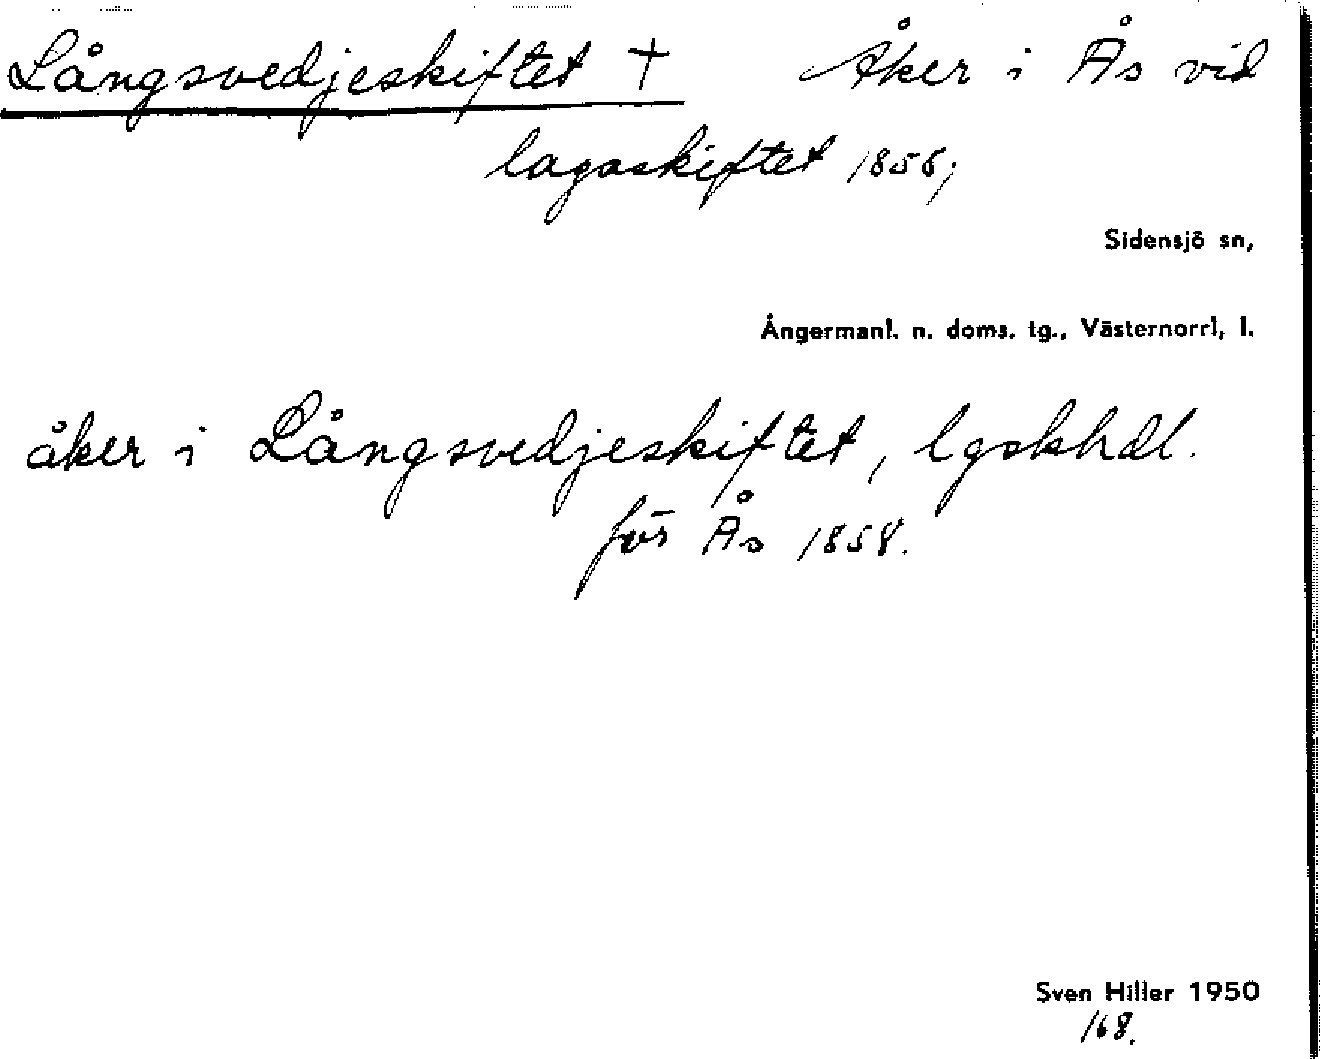 Långsvedjeskiftet + Åker i Ås vid
lagaskiftet 1858;
Sidensjö sn,
Ångermanl. n. doms. tg., Västernorrl. l.
åker i Långsvedjeskiftet, lgskhdl.
för Ås 1858.
Sven Hiller 1950
168.